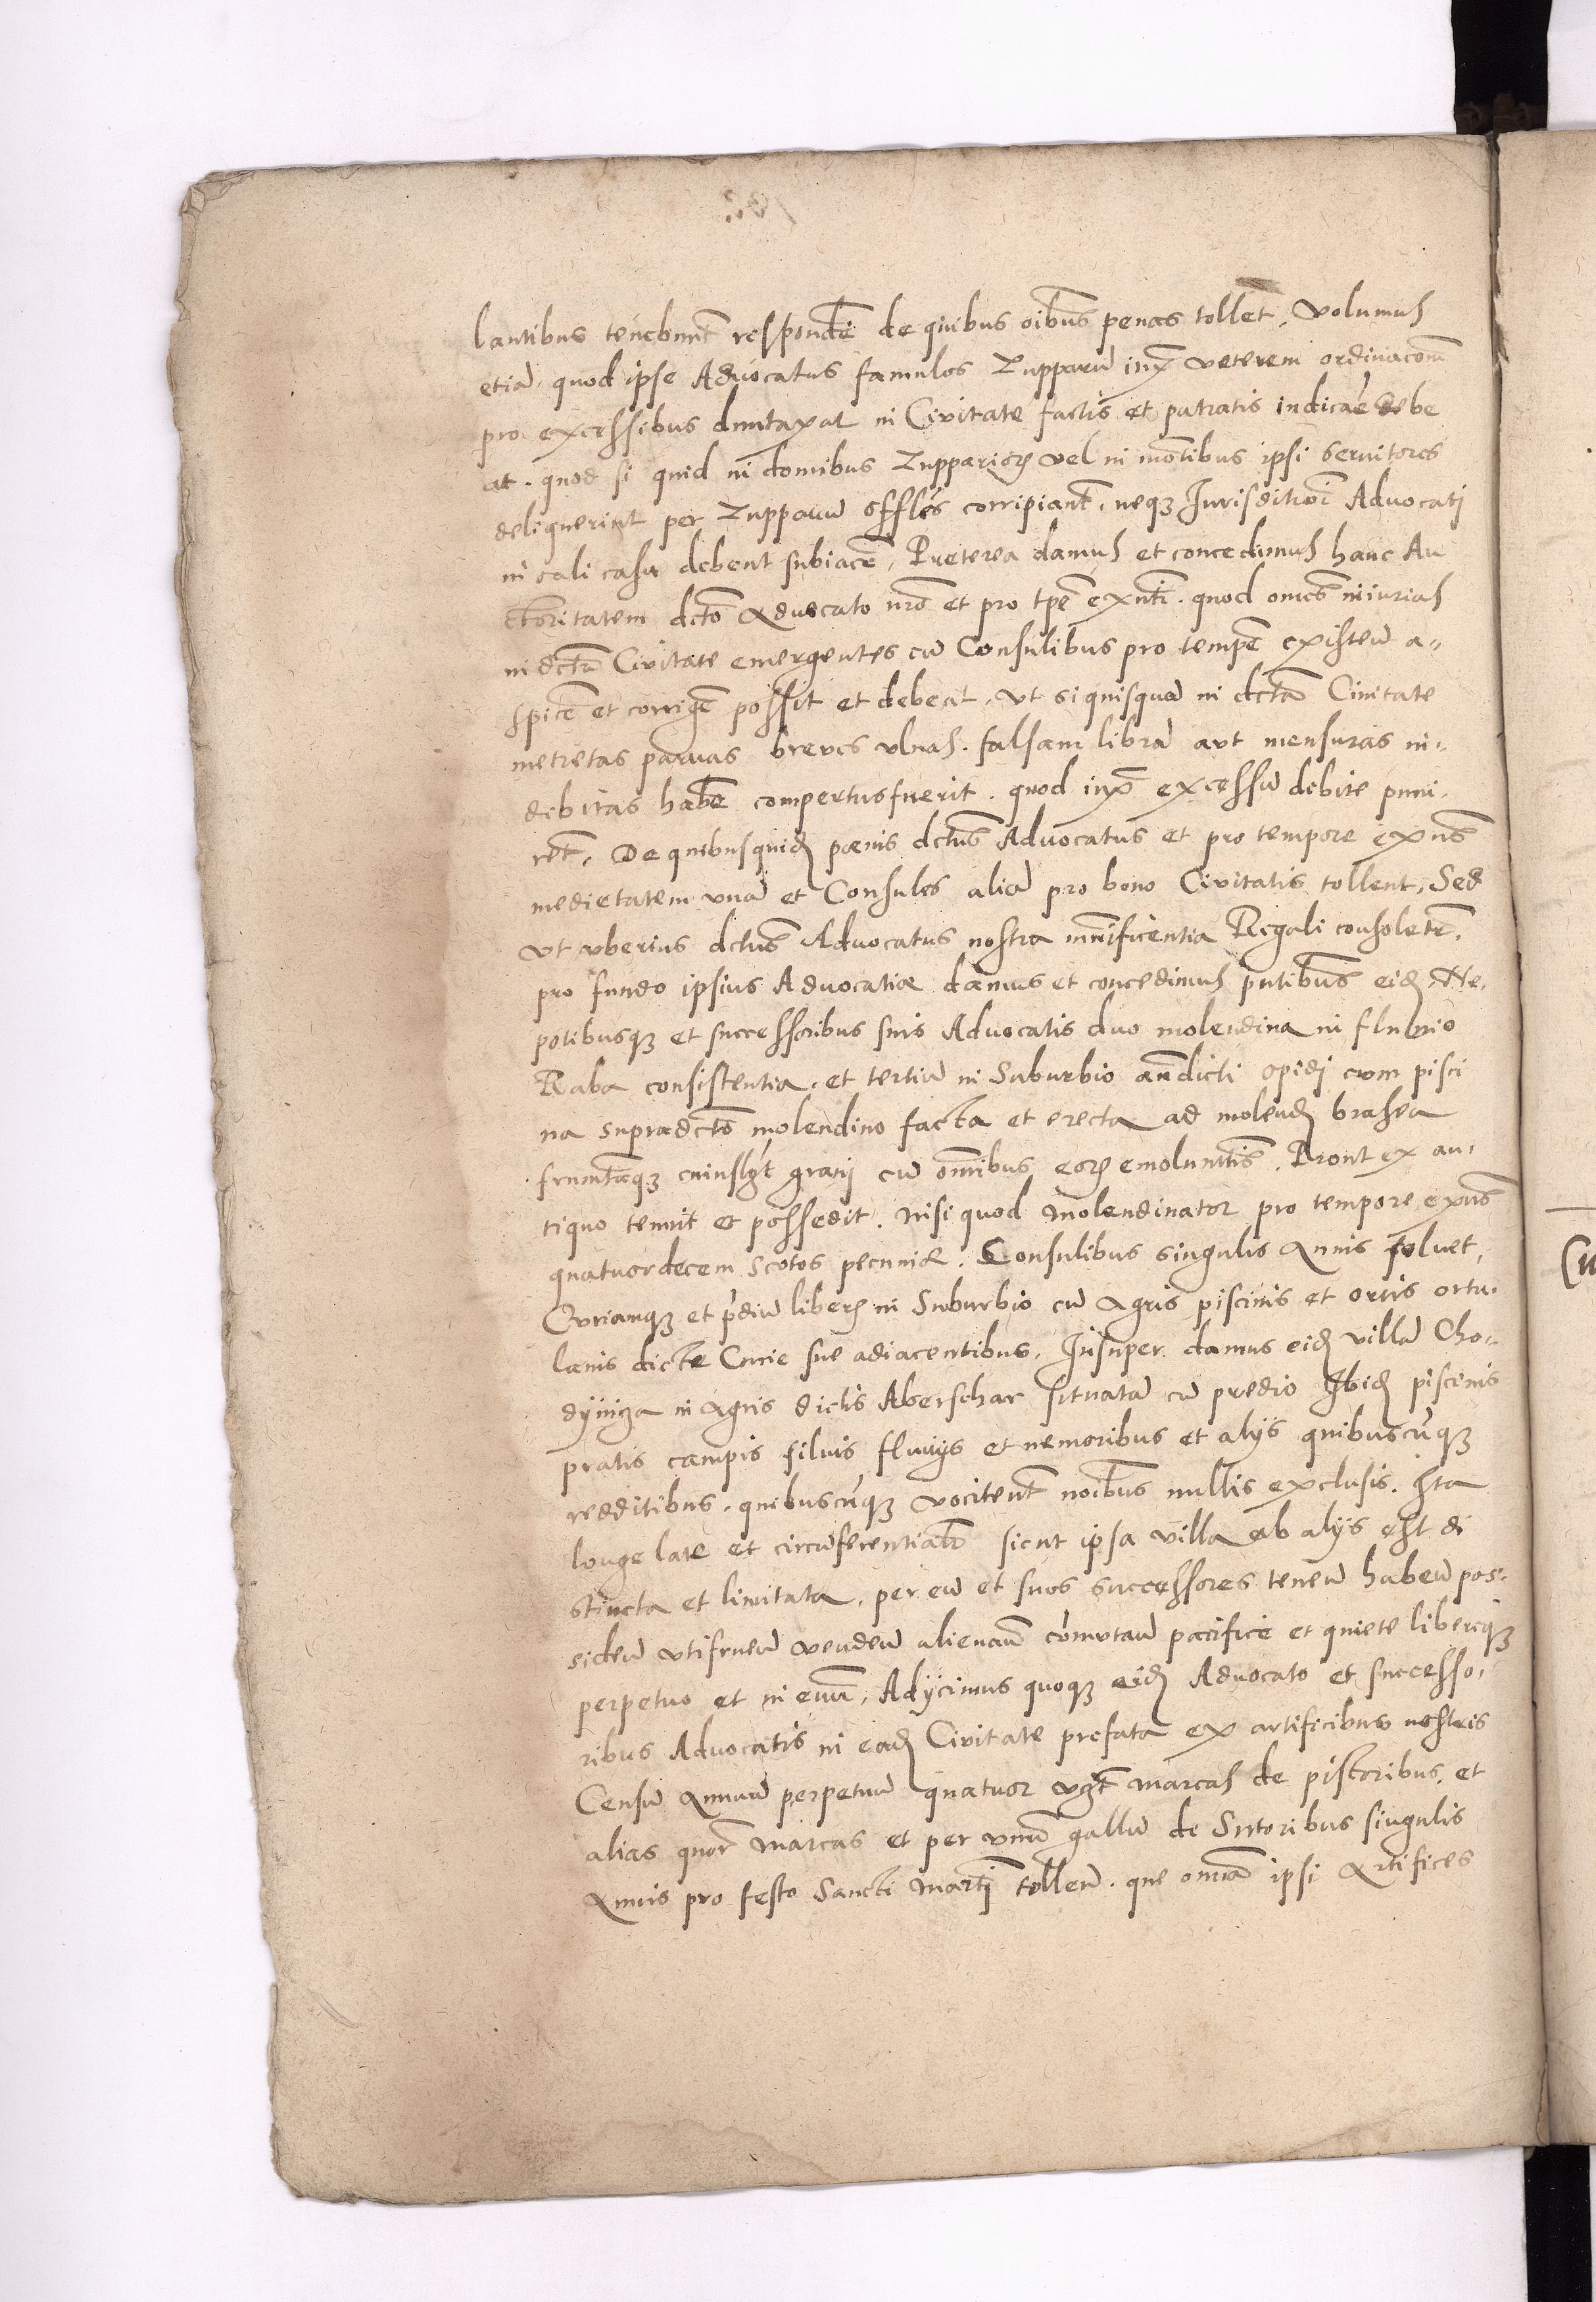 lantibus tenebunt̄ respondē de quibus oībus penas tollet, Volumus
etiā quod ipse Advocatus famulos Zupparū iux̄ veterem ordinacōm
pro excessibus duntaxat in Civitate factis et patratis iudicāe debe
at. quod si quid in domibus Zuppariorꝫ vel in mōtibus ipsi servitores
deliquerint per Zupparū offles corripiant̄, neqꝫ Jurisditiōi Advocatj
in tali casu debent subiacē, Preterea damus et concedimus hanc Au
ctoritatem dcto Aduocato nrō et pro tpē exn̄ti. quod omēs iniurias
in dctā Civitate emergentes cū Consulibus pro tempē existeñ a=
spicē et corrigē possit et debeat, Vt siquisquā in dctā Ciuitate
metretas paruas breves ulnas. falsam librā aut mensuras in=
debitas habē compertusfuerit. quod iux̄ excessū debite puni=
ret̄, De quibusquidꝫ pœnis dctus Advocatus et pro tempore exn̄s
medietatem unā et Consules aliā pro bono Civitatis tollent, Sed
Vt uberius dctus Advocatus nostra mn̄ificentia Regali consoletr̄,
pro fundo ipsius Advocatiæ damus et concedimus pn̄tibus eidꝫ Ne=
potibusqꝫ et successoribus suis Advocatis duo molendina in fluvio
Raba consistentia, et tertiū in Suburbio an̄dicti opidj cum pisci
na supradcto molendino facta et erecta ad molendꝫ brasea
frumt̄aqꝫ cuiuslꝫt granj cū omībus eorꝫ emolumt̄is, Prout ex an=
tiquo tenuit et possedit. nisi quod Molendinator pro tempore exn̄s
quatuordecem Scotos pecuniæ. Consulibus singulis Annis soluet,
Curianqꝫ et p̄diū liberꝫ in Suburbio cū Agris piscinis et ortis ortu=
lanis dicte Curie sue adiacentibus, Insuper damus eidꝫ villā Cho=
dynicza in Agris dictis Aberschar situatā cū predio Ibidꝫ piscinis
pratis campis siluis fluuijs et nemoribus et alijs quibuscūqꝫ
redditibus. quibuscūqꝫ vocitent̄ noībus nullis exclusis. Ita
longe late et circūferentialr̄ sicut ipsa villa ab alijs est di
stincta et limitata, per eū et suos successores teneñ habeñ pos=
sideñ utifrueñ vendeñ alienañ cōmutañ pacifice et quiete libereqꝫ
perpetuo et in evum, Adijcimus quoqꝫ eidꝫ Advocato et successo=
ribus Advocatis in eadꝫ Civitate prefata ex artificibus nostris
Censū Annuū perpetuū quatuor vꝫt marcas de pistoribus, et
alias quor̄ marcas et per unū gallū de Sutoribus singulis
Annis pro festo Sancti Martj tolleñ. que omīa ipsi Artifices